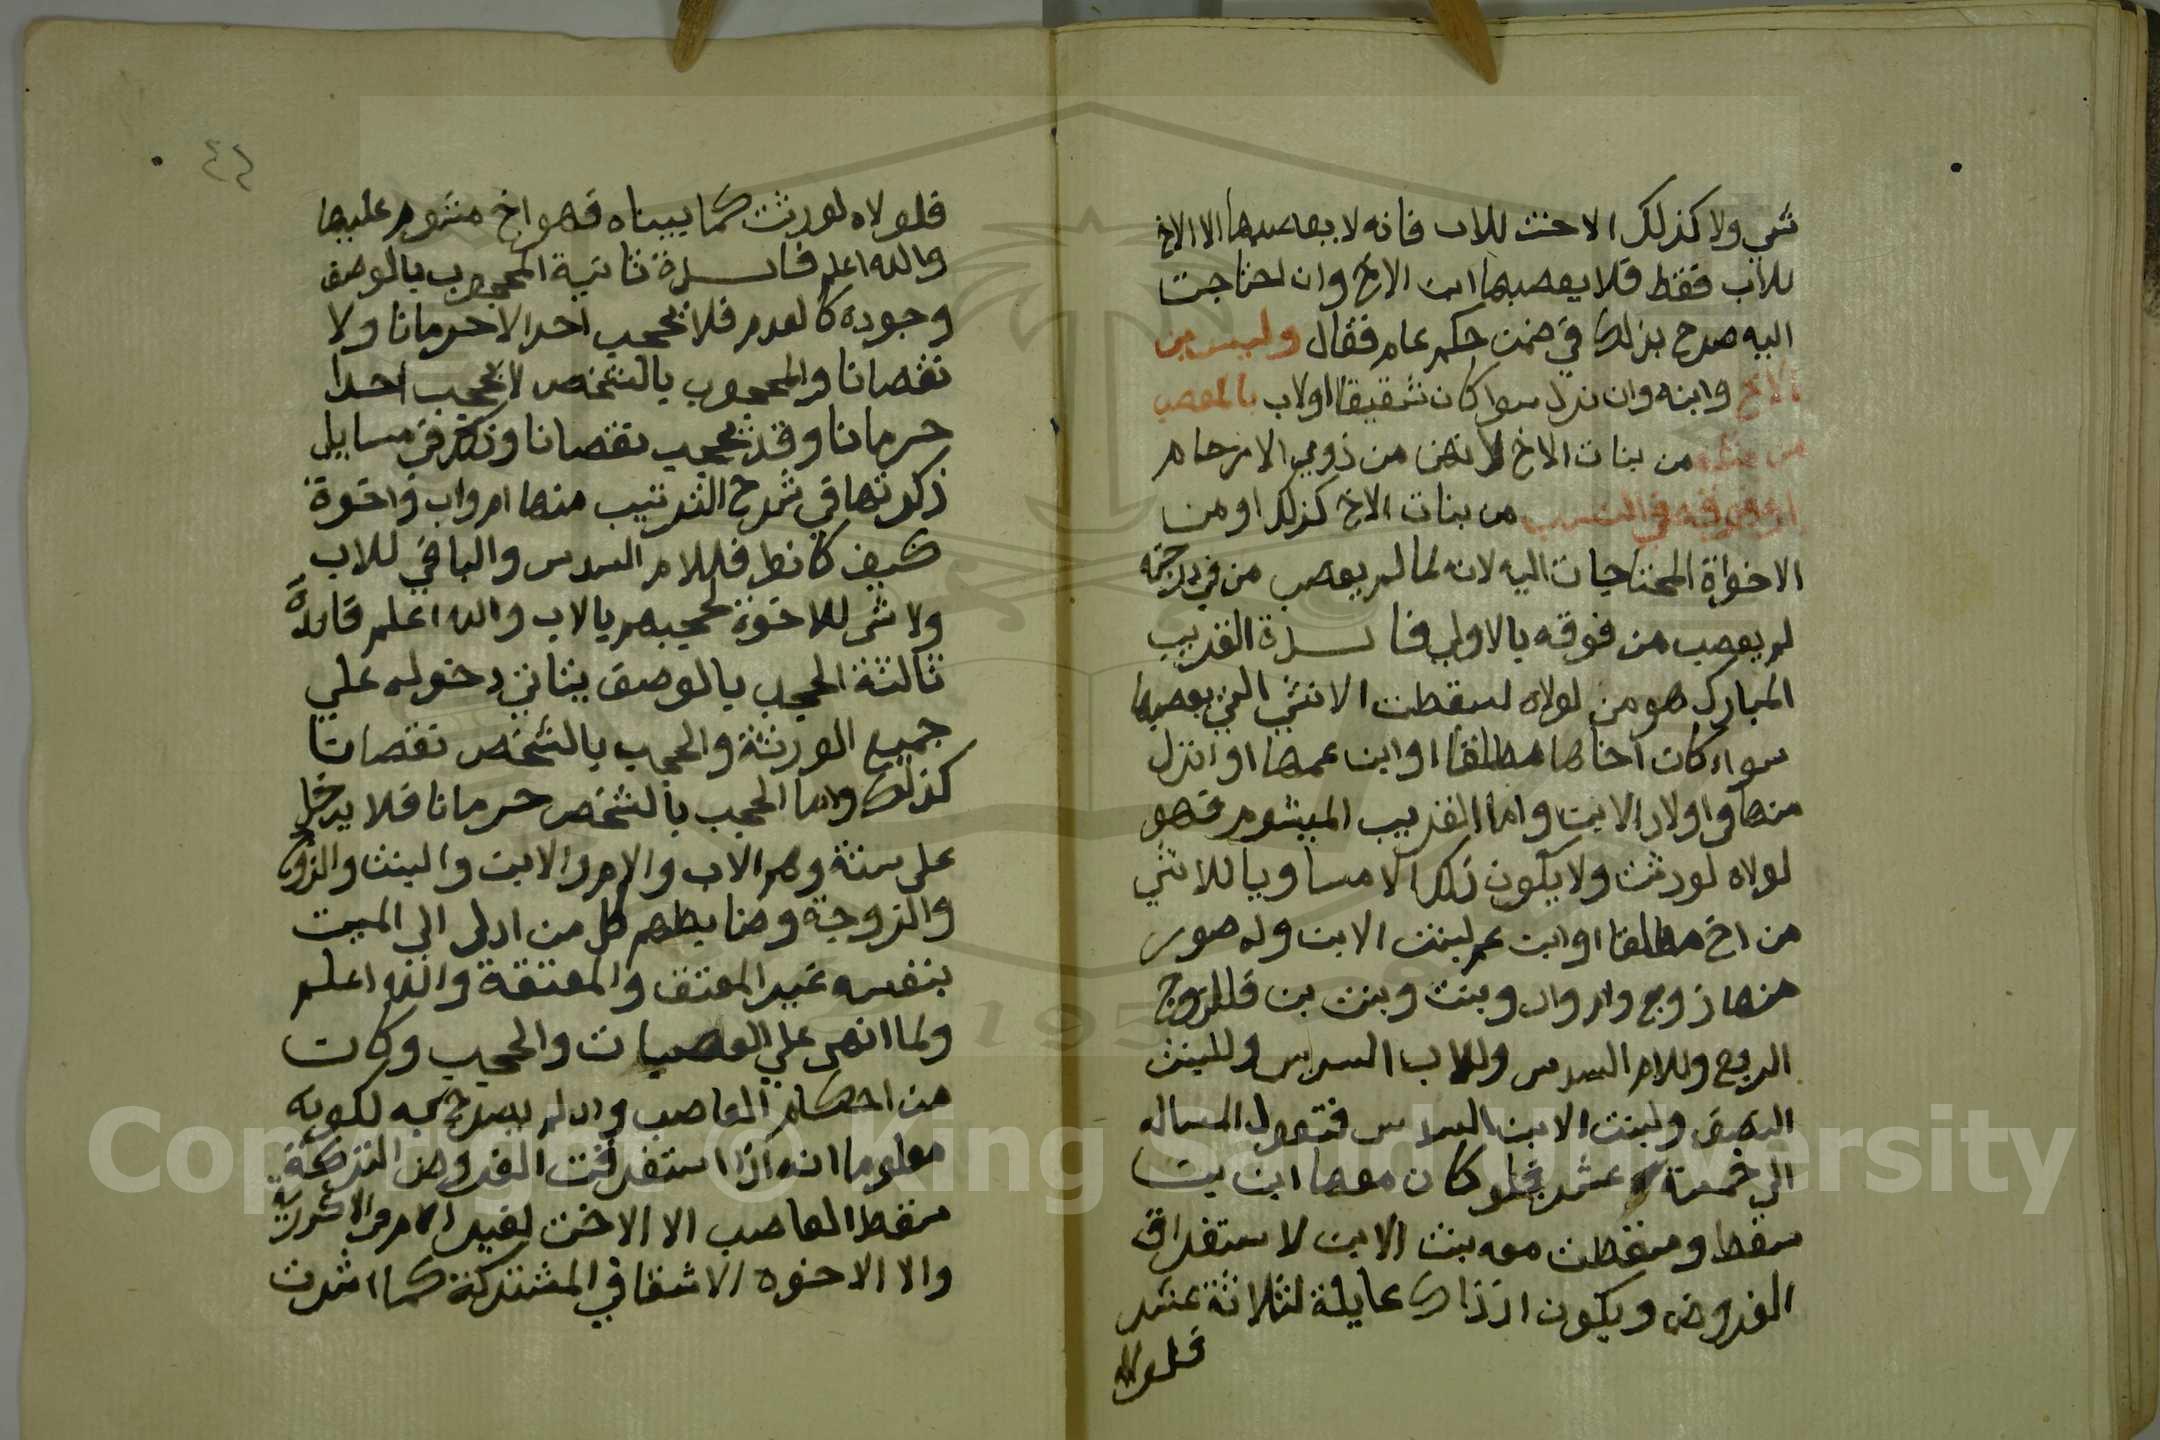 شي ولا كذلك الاخت للاب فانه لا يعصبها الا الاخ
للاب فقط فلا يعصبها ابن الاخ وان احتاجت
اليه صرح بذلك في ضمن حكم عام فقال وليس ابن
الاخ وابنه وان نزل سوا كان شقيقا او لاب بالمعصب
من مثله من بنات الاخ لانهن من ذوي الارحام
او من فوقه في النسب من بنات الاخ كذلك او من
الاخوات المحتاجات اليه لانه لما لم يعصب من في درجته
لم يعصب من فوقه بالاولي فايدة القريب
المبارك هو من لولاه لسقطت الانثي التي يعصبها
سواء كان اخاها مطلقا او ابن عمها او انزل
منها في اولاد الابن واما القريب الميشوم فهو
لولاه لورثت ولا يكون ذلك الا مساويا للانثي
من اخ مطلقا او ابن عم لبنت الابن وله صور
منها زوج وام واب وبنت وبنت بن فللزوج
الربع وللام السدس وللاب السدس وللبنت
النصف ولبنت الابن السدس فتعول المساله
الي خمسة عشر فلو كان معها ابن بن
سقط وسقطت معه بنت الابن لاستغراق
الفروض ويكون اذ ذاك عايلة لثلاثة عشر
فلولاه
٤٢
فلولاه لورثت كما بيناه فهو اخ مشوم عليها
والله اعلم فايدة ثانية المحجوب بالوصف
وجوده كالعدم فلا يحجب احدا لا حرمانا ولا
نقصانا والمحجوب بالشخص لا يحجب احدا
حرمانا وقد يحجب نقصانا وذكر في مسايل
ذكرتها في شرح الترتيب منها ام واب واخوة
كيف كانوا فللام السدس والباقي للاب
ولا شي للاخوة لحجبهم بالاب والله اعلم فايدة
ثالثة الحجب بالوصف يتاتي دخوله علي
جميع الورثة والحجب بالشخص نقصانا
كذلك واما الحجب بالشخص حرمانا فلا يدخل
علي ستة وهم الاب والام والابن والبنت والزوج
والزوجة وضابطهم كل من ادلي الي الميت
بنفسه غير المعتق والمعتقة والله اعلم
ولما انهي علي العصبات والحجب وكان
من احكام العاصب وان لم يصرح به لكونه
معلوما انه اذا استغرقت الفروض التركة
سقط العاصب الا الاخت لغير الام في الاكدرية
والا الاخوه الاشقا في المشتركة كما اشرت